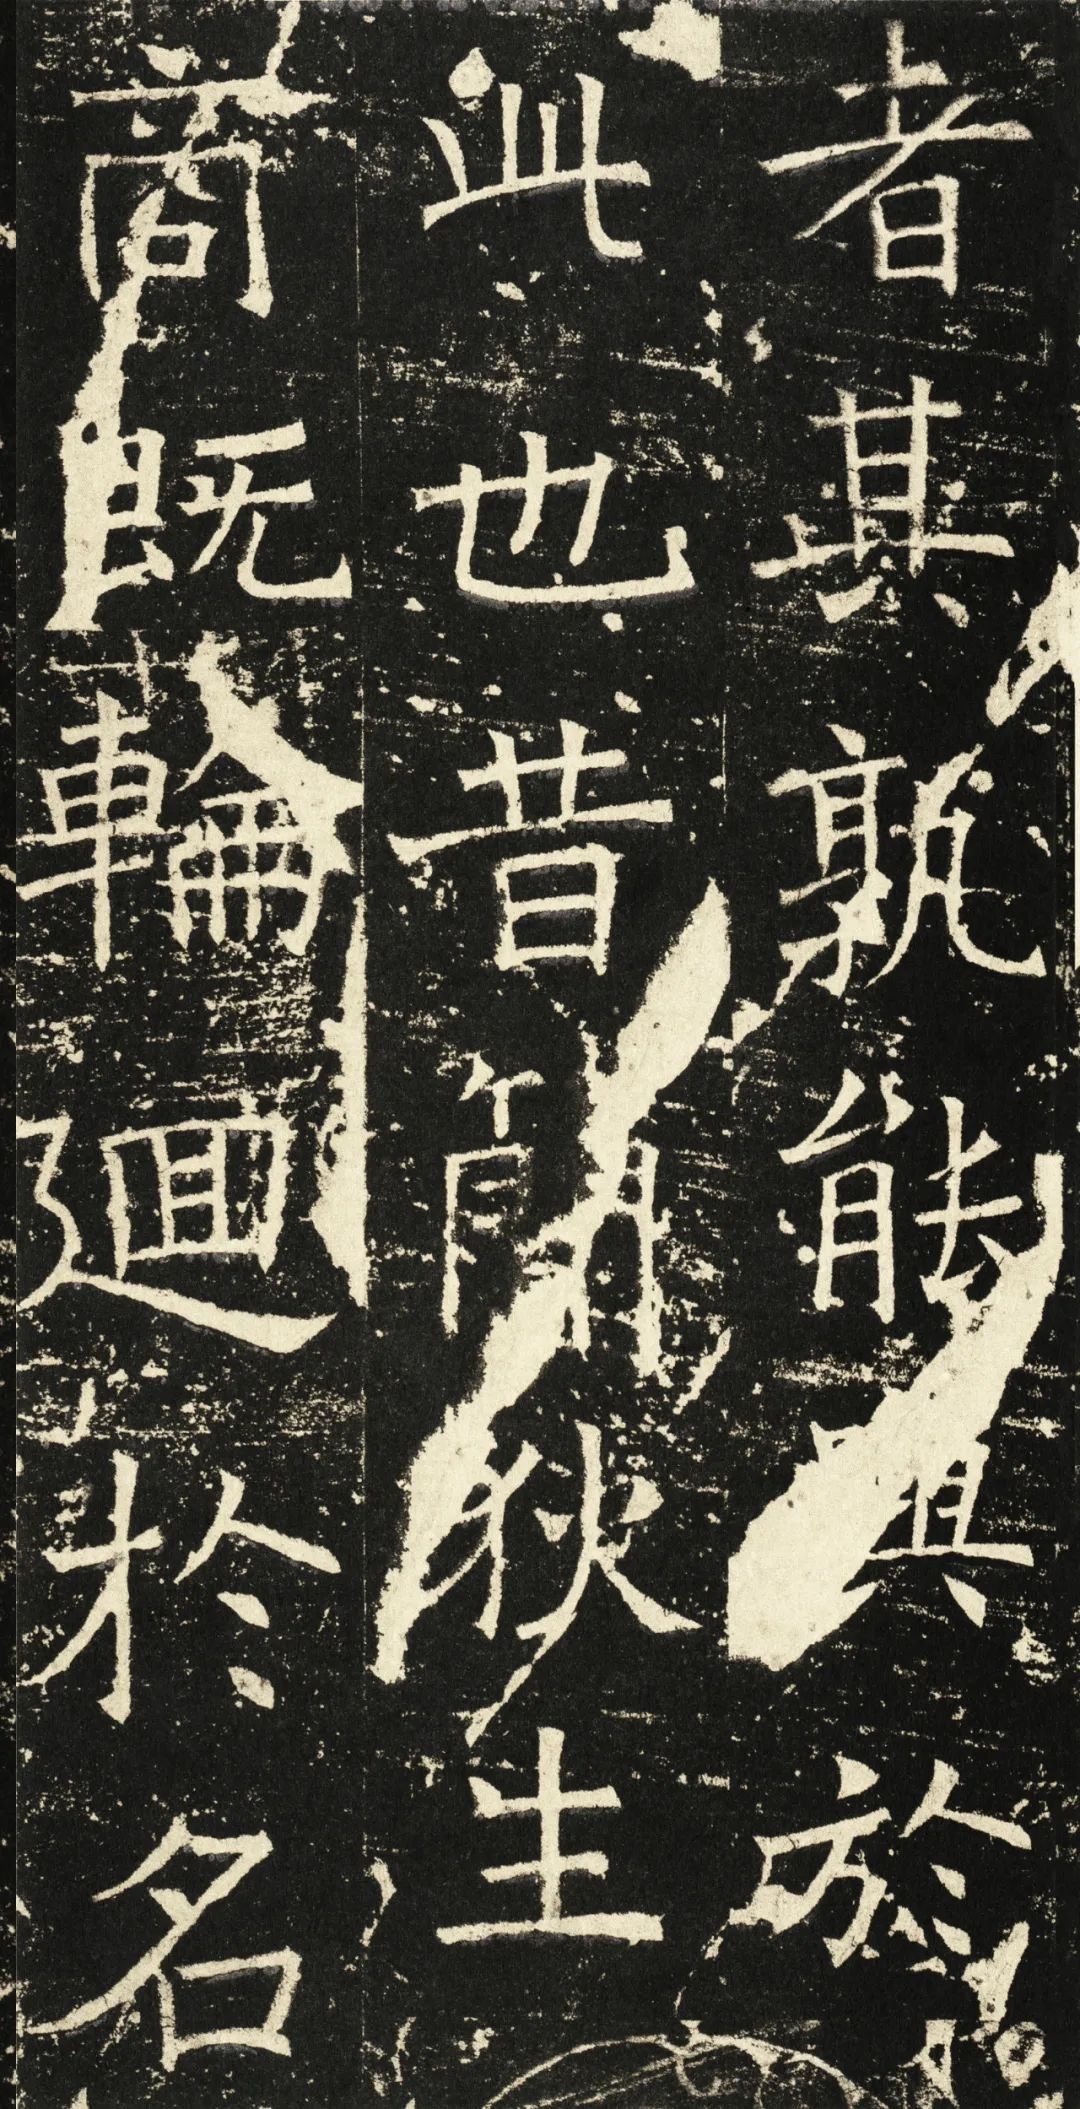 者其孰能與於
此也昔簡狄生
商既輪廻扵名